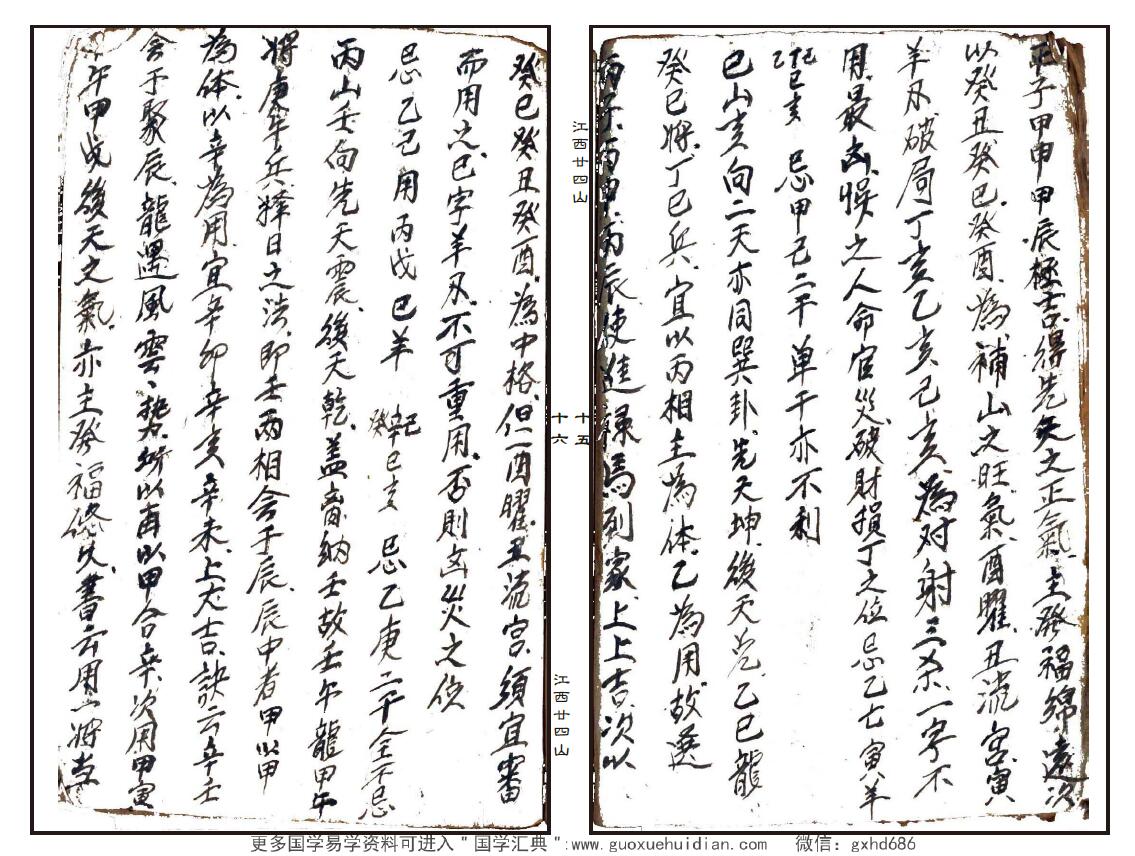 丙子甲申甲辰極吉得先天之正氣主發福綿遠次
以癸丑癸巳癸酉為補山之旺氣酉曜丑流宮寅
羊刃破局丁亥乙亥己亥為对射三杀一字不
用最凶悞之人命官災破財損丁之位忌乙七寅羊
乙巳亥 忌甲己二干单干亦不利
巳山亥向二天亦同巽卦先天坤後天兑乙巳龍
癸巳將丁巳兵宜以丙相主為体乙為用故選
丙子丙申丙辰使進禄馬到家上上吉次以
十五
江西廿四山
癸巳癸丑癸酉為中格但一酉曜丑流宫須宜審
而用之巳字羊刃不可重用否則凶災之位
忌乙己用丙戊巳羊 巳亥 忌乙庚二干全不忌
丙山壬向先天震後天乾盖畜納壬故壬午龍甲午
將庚午兵擇日之法即壬丙相会于辰辰中者甲以甲
為体以辛為用宜辛卯辛亥辛未上大吉訣云辛壬
会于聚辰龍遇風雲以再以甲合辛次用甲寅
午甲戌後天之氣亦主發福悠久書云用将
十六
江西廿四山
更多国学易学资料可进入＂国学汇典＂:www.guoxuehuidian.com 微信：gxhd686